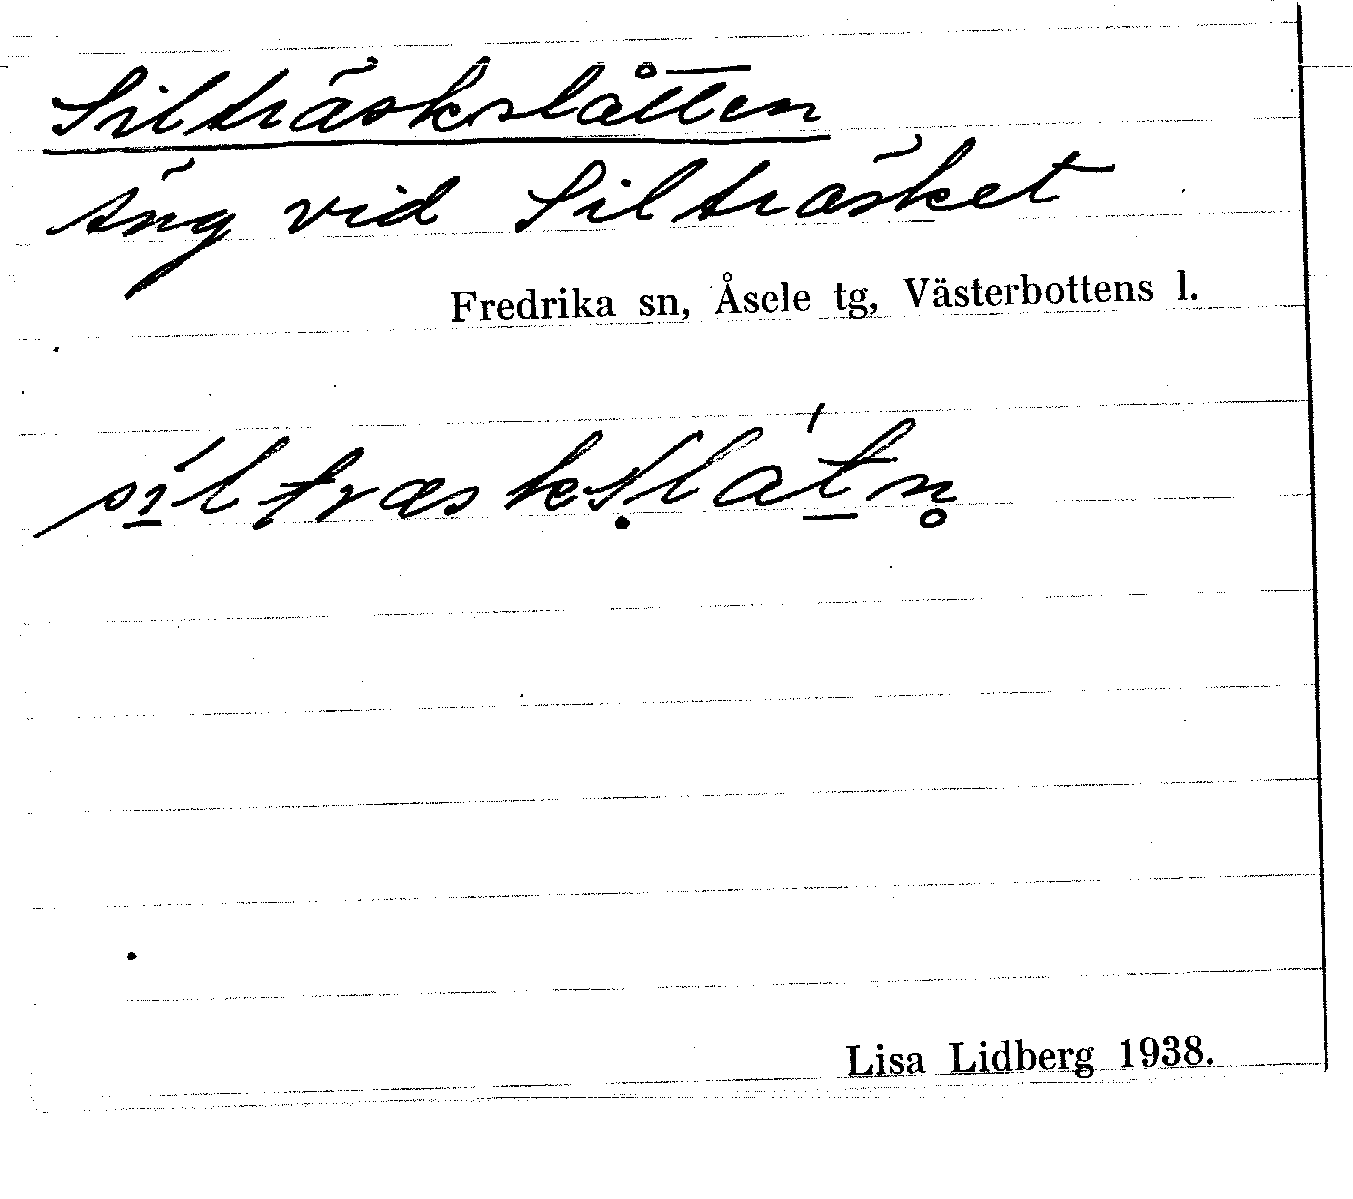 Silträskslåtten
äng vid Silträsket
Fredrika sn, Åsele tg, Västerbottens l.
Lisa Lidberg 1938.